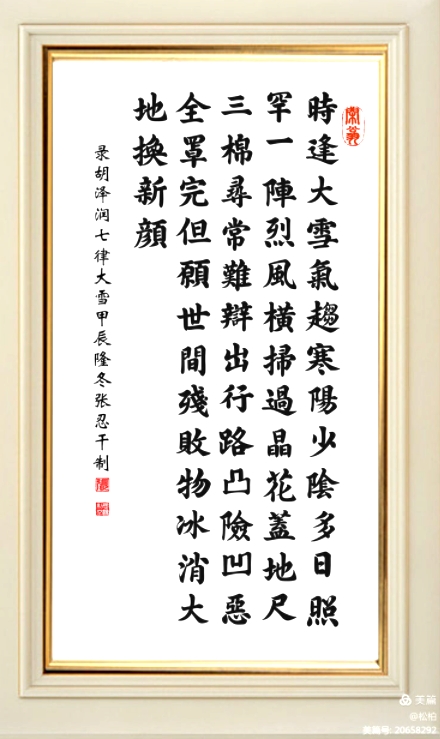 時逢大雪氣趨寒陽少陰多日照
罕一陣烈風橫掃過晶花蓋地尺
三棉尋常難辯出行路凸險凹惡
全罩完但願世間殘敗物冰消大
地換新顔
录胡泽润七律大雪甲辰隆冬张忍干制
美篇
@松柏
美篇号: 20658292